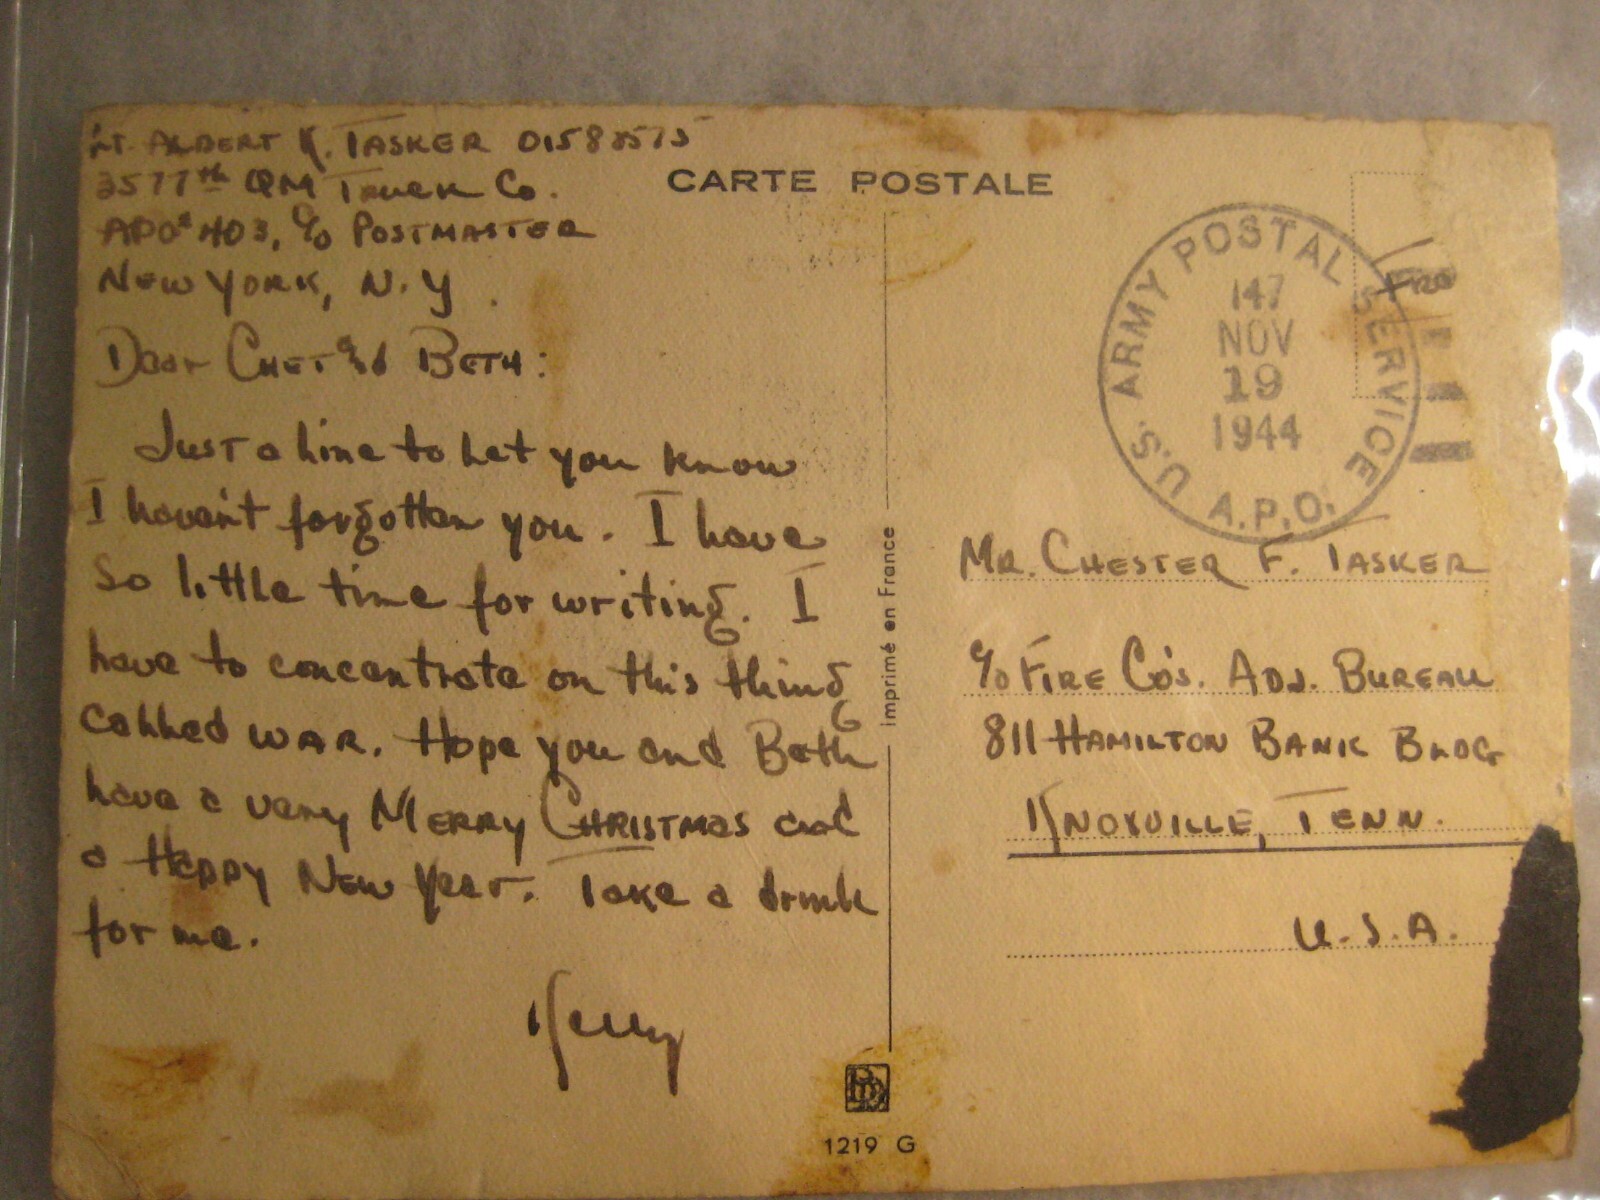 Lt. Albert K. Tasker 01583575
3577th QM Truck Co.
APO# 403, c/o Postmaster
New York, N.Y.
Dear Chet and Beth:
Just a line to let you know
I haven't forgotten you. I have
so little time for writing. I
have to concentrate on this thing
called war. Hope you and Beth
have a very Merry Christmas and
a Happy New Year. Take a drink
for me.
Kelly
CARTE POSTALE
Imprimé en France
1219 G
U.S. ARMY POSTAL SERVICE
147
NOV
19
1944
A.P.O.
Free
Mr. Chester F. Tasker
c/o Fire Co's. Adj. Bureau
811 Hamilton Bank Bldg
Knoxville, Tenn.
U.S.A.